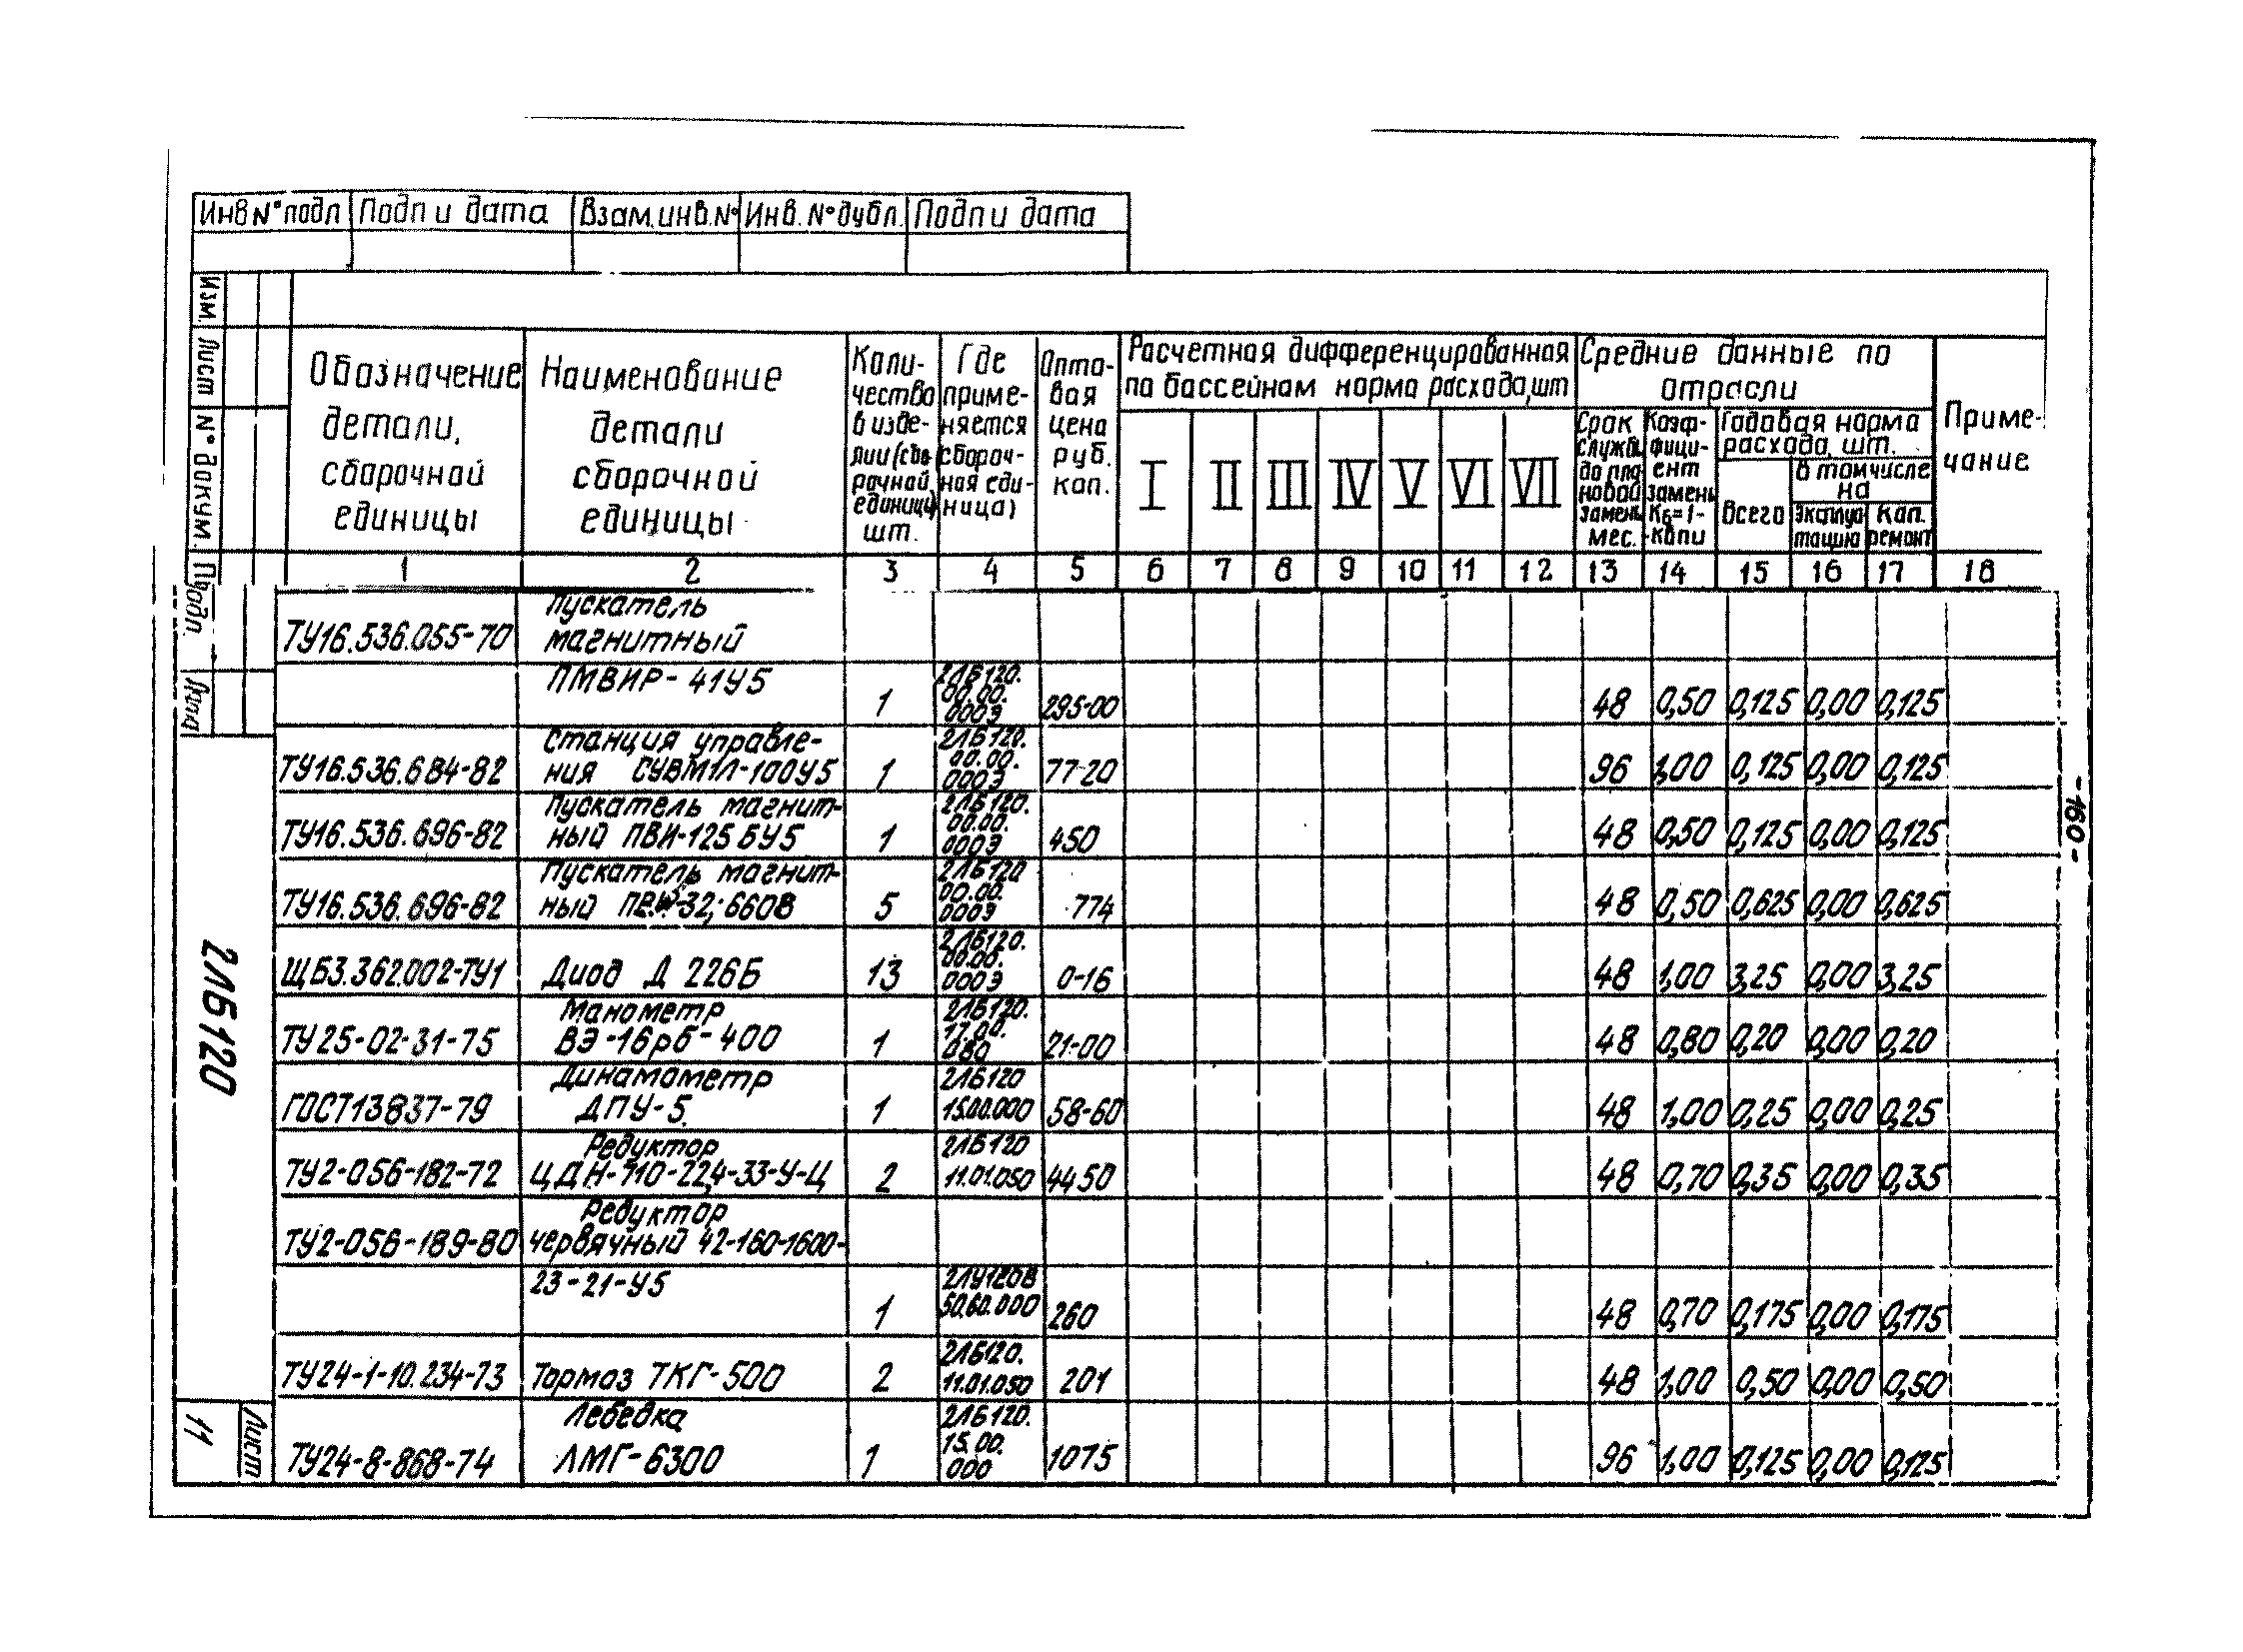 Инв N° подл Подп и дата Взам. инв. N° Инв. N° дубл. Подп и дата
Изм. Лист N° докум. Подп. Дата
Обозначение детали, сборочной единицы
Наименование детали сборочной единицы
Количество в изделии (сборочной единице) шт.
Где применяется сборочная единица)
Оптовая цена руб. коп.
Расчетная дифференцированная по бассейнам норма расхода, шт
I II III IV V VI VII
Средние данные по отрасли
Срок службы до плановой замены мес.
Коэффициент замены Kб=1-
Годовая норма расхода, шт.
Всего
в том числе на
Эксплуатацию
Кап. ремонт
Примечание
1 2 3 4 5 6 7 8 9 10 11 12 13 14 15 16 17 18
ТУ16.536.055-70 Пускатель магнитный
ПМВИР-41У5 1 2ЛБ120.00.00.000Э 295-00 48 0,50 0,125 0,00 0,125
ТУ16.536.684-82 Станция управления СУВМ1Л-100У5 1 2ЛБ120.00.00.000Э 77-20 96 1,00 0,125 0,00 0,125
ТУ16.536.696-82 Пускатель магнитный ПВИ-125 БУ5 1 2ЛБ120.00.00.000Э 450 48 0,50 0,125 0,00 0,125
ТУ16.536.696-82 Пускатель магнитный 32; 660В 5 2ЛБ120 00.00.000Э 774 48 0,50 0,625 0,00 0,625
ЩБ3.362.002-ТУ1 Диод Д 226Б 13 2ЛБ120.00.00.000Э 0-16 48 1,00 3,25 0,00 3,25
ТУ25-02-31-75 Манометр ВЭ-16рб-400 1 2ЛБ120.17.00.080 21-00 48 0,80 0,20 0,00 0,20
ГОСТ13837-79 Динамометр ДПУ-5 1 2ЛБ120 15.00.000 58-60 48 1,00 0,25 0,00 0,25
ТУ2-056-182-72 Редуктор ЦДН-710-22,4-33-У-Ц 2 2ЛБ120 11.01.050 4450 48 0,70 0,35 0,00 0,35
ТУ2-056-189-80 Редуктор червячный 42-160-1600-
23-21-У5 1 2ЛУ120В 50.60.000 260 48 0,70 0,175 0,00 0,175
ТУ24-1-10.234-73 Тормоз ТКГ-500 2 2ЛБ120. 11.01.050 201 48 1,00 0,50 0,00 0,50
ТУ24-8-868-74 Лебедка ЛМГ-6300 1 2ЛБ120. 15.00.000 1075 96 1,00 0,125 0,00 0,125
2ЛБ120
Лист 11
-160-